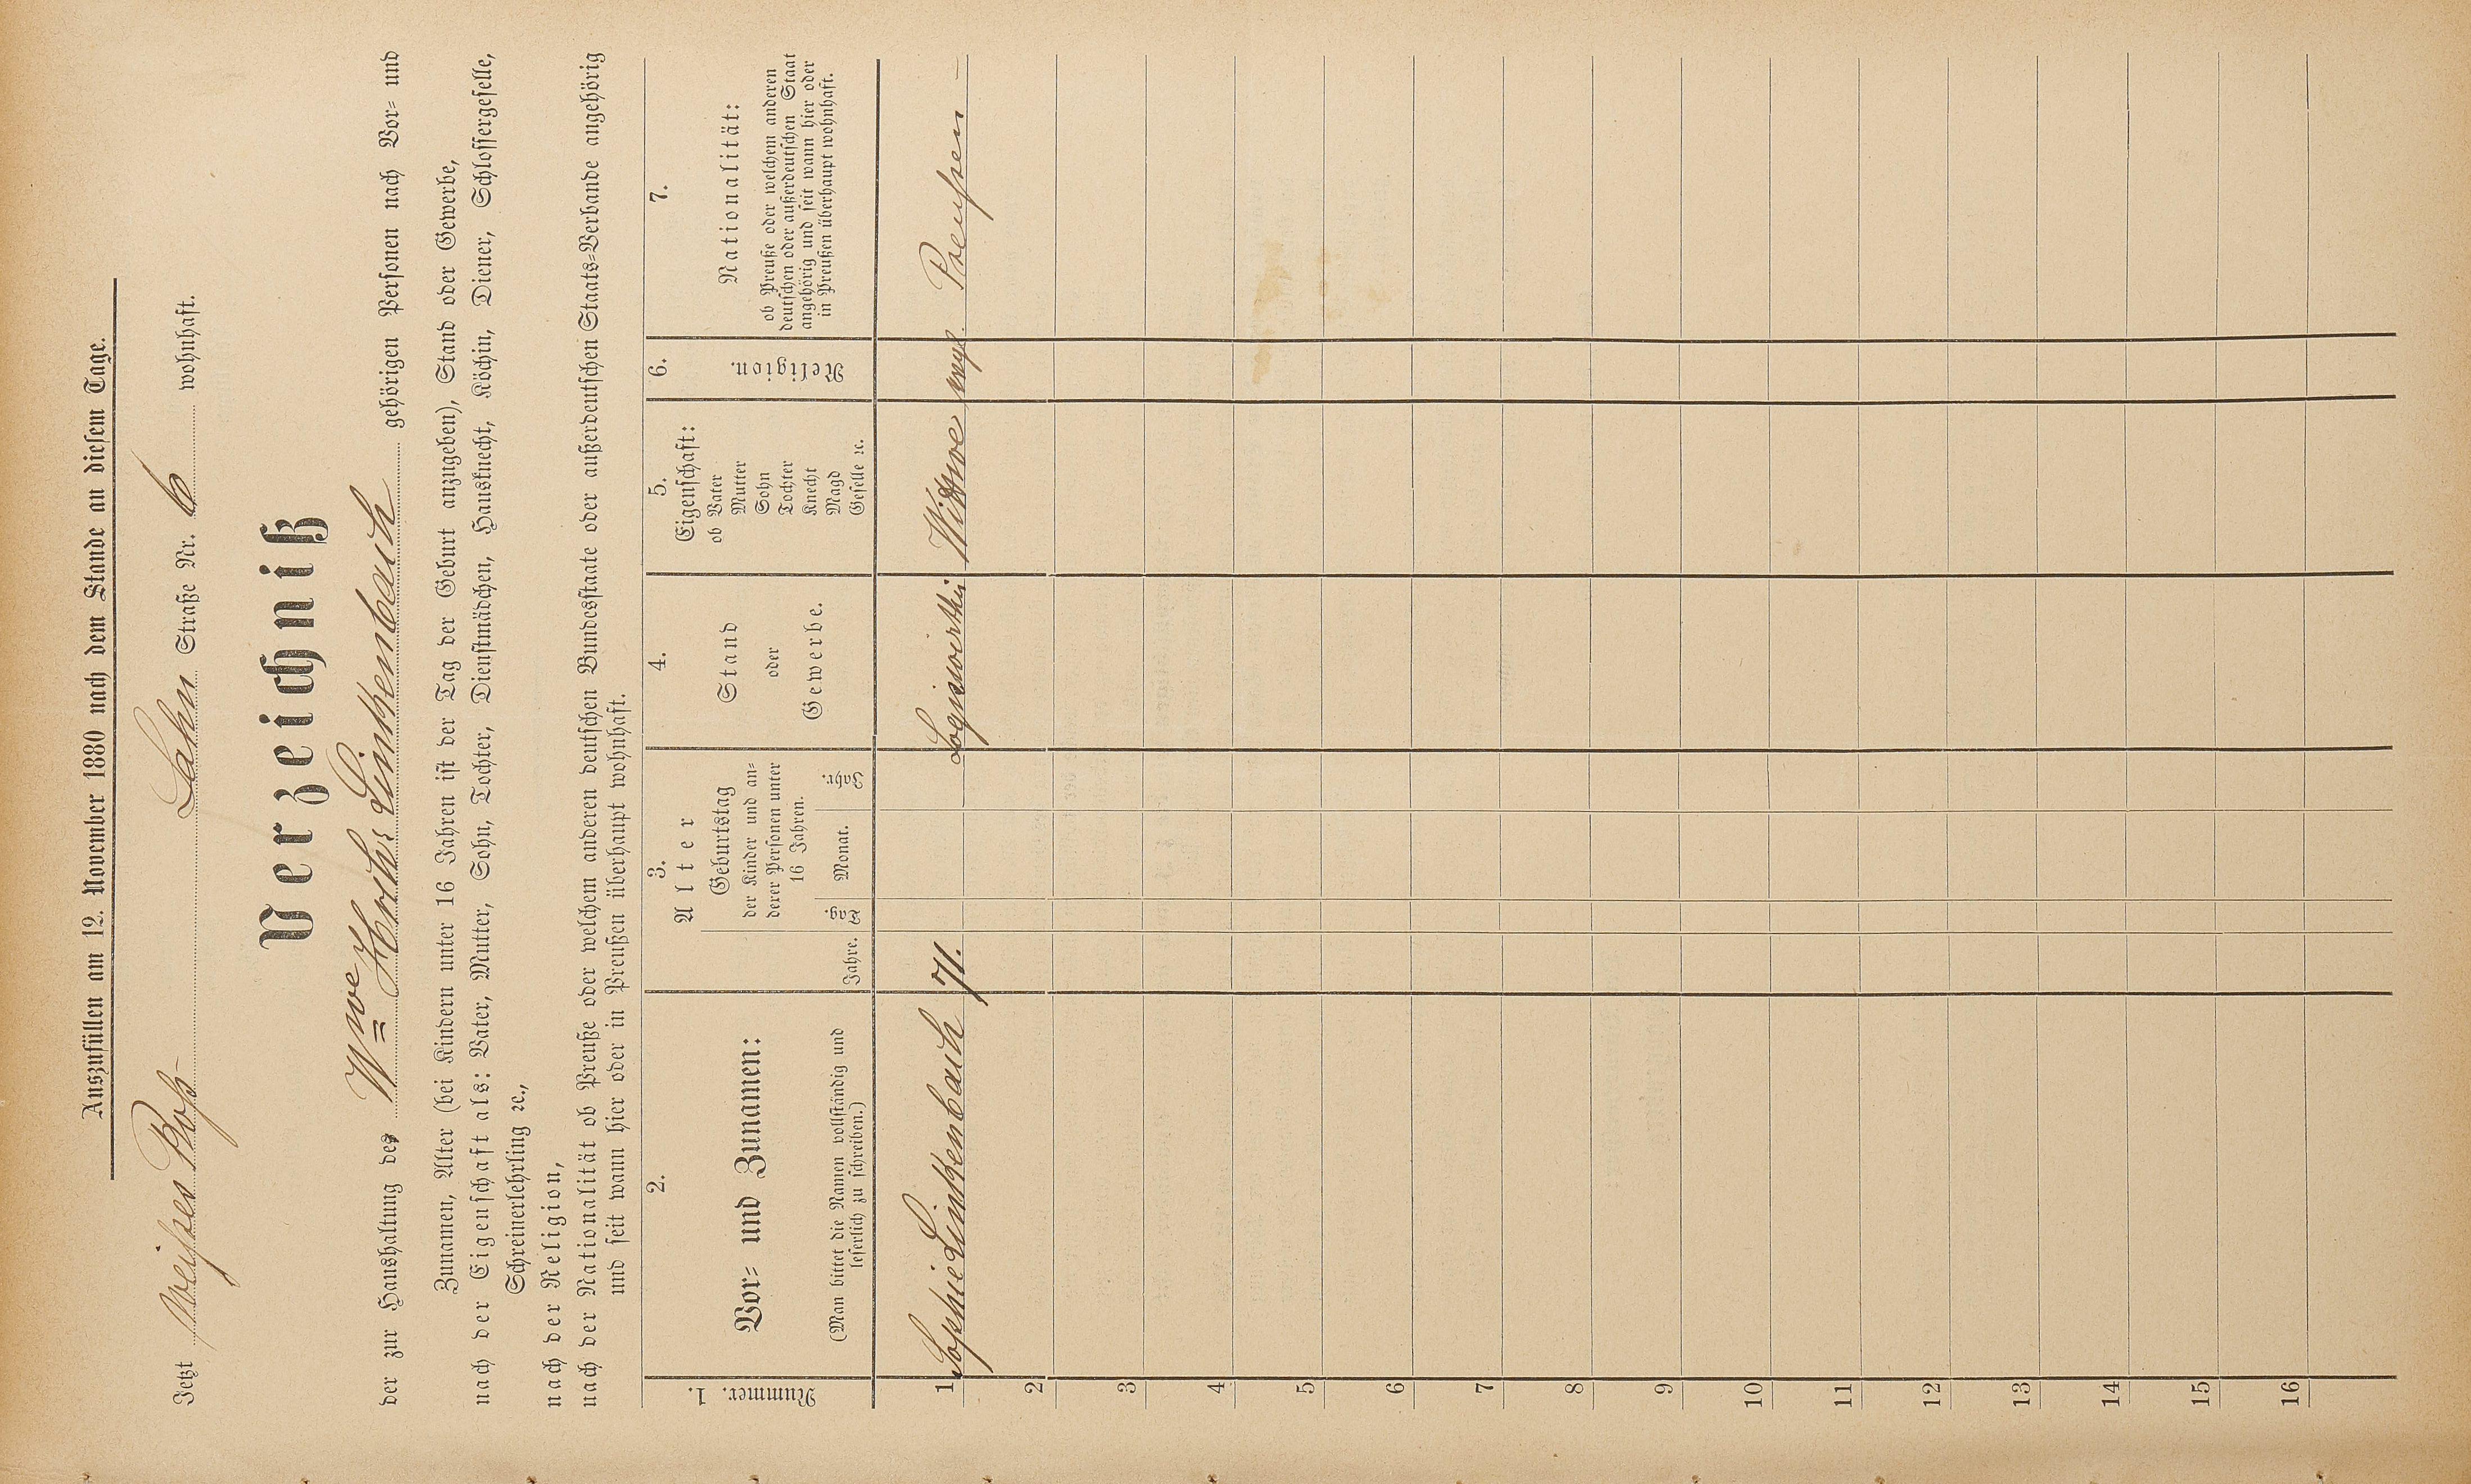 Auszufüllen am 12. November 1880 nach dem Stande an diesem Tage.
Jetzt Weißes Roß Lahn Straße Nr. 6 wohnhaft.
Verzeichniß
der zur Haushaltung des Wwe Hrch. Linkenbach gehörigen Personen nach Vor- und
Zunamen, Alter (bei Kindern unter 16 Jahren ist der Tag der Geburt anzugeben), Stand oder Gewerbe,
nach der Eigenschaft als: Vater, Mutter, Sohn, Tochter, Dienstmädchen, Hausknecht, Köchin, Diener, Schlossergeselle,
Schreinerlehrling ꝛc.,
nach der Religion,
nach der Nationalität ob Preuße oder welchem anderen deutschen Bundesstaate oder außerdeutschen Staats-Verbande angehörig
und seit wann hier oder in Preußen überhaupt wohnhaft.
1.
Nummer.
2.
Vor- und Zunamen:
(Man bittet die Namen vollständig und
leserlich zu schreiben.)
3.
Alter
Jahre.
Geburtstag
der Kinder und an-
derer Personen unter
16 Jahren.
Tag.
Monat.
Jahr.
4.
Stand
oder
Gewerbe.
5.
Eigenschaft:
ob Vater
Mutter
Sohn
Tochter
Knecht
Magd
Geselle ꝛc.
6.
Religion.
7.
Nationalität:
ob Preuße oder welchem anderen
deutschen oder außerdeutschen Staat
angehörig und seit wann hier oder
in Preußen überhaupt wohnhaft.
1 Sophie Linkenbach 71. Logiswirthin Wittwe evgl. Preußen
2
3
4
5
6
7
8
9
10
11
12
13
14
15
16